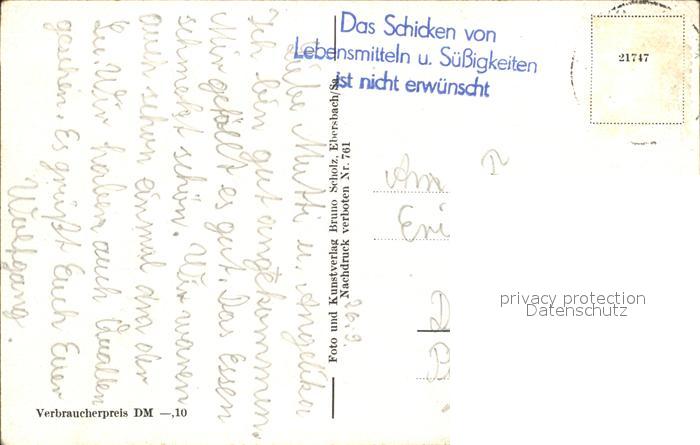 Das Schicken von
Lebensmitteln u. Süßigkeiten
ist nicht erwünscht
21747
26.9.
Liebe Mutti u. Angelika
Ich bin gut angekommen.
Mir gefällt es gut. Das Essen
schmekt schön. Wir waren
auch schon einmal an der
See. Wir haben auch Quallen
gesehen. Es grüßt Euch Euer
Wolfgang.
Foto und Kunstverlag Bruno Scholz, Ebersbach/Sa.
Nachdruck verboten Nr. 761
An
Eri
D
privacy protection
Datenschutz
Verbraucherpreis DM —,10